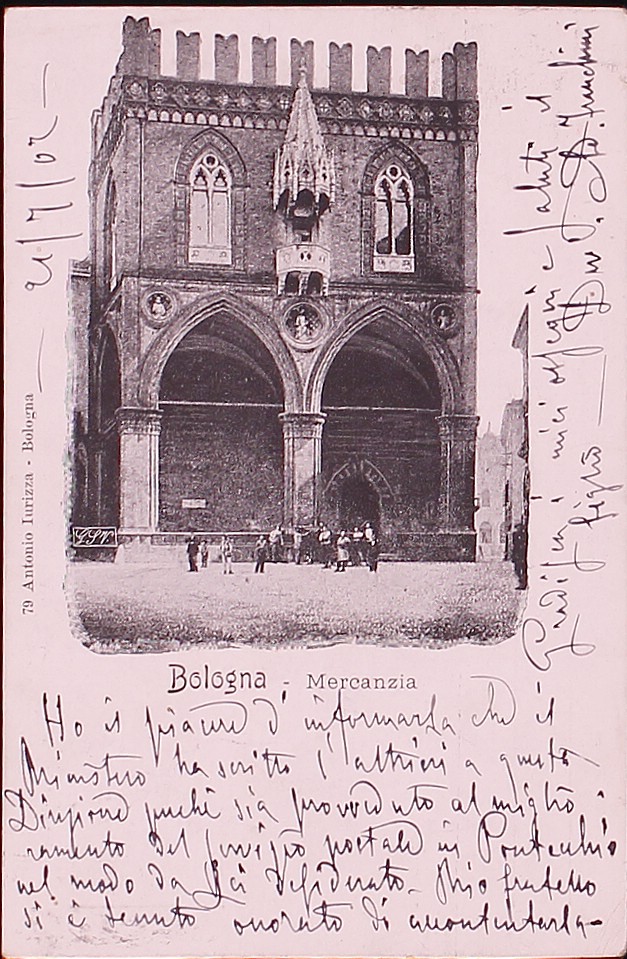 21/7/02
79 Antonio Iurizza - Bologna
Bologna - Mercanzia
Ho il piacere d'informarla che il
Ministero ha scritto l'altrieri a questa
Direzione perchè sia provveduto al miglio-
ramento del servizio postale in Pontecchio
nel modo da Lei desiderato. Mio fratello
si è tenuto onorato di accontentarla-
Gradisca i miei ossequi e saluti il
figlio